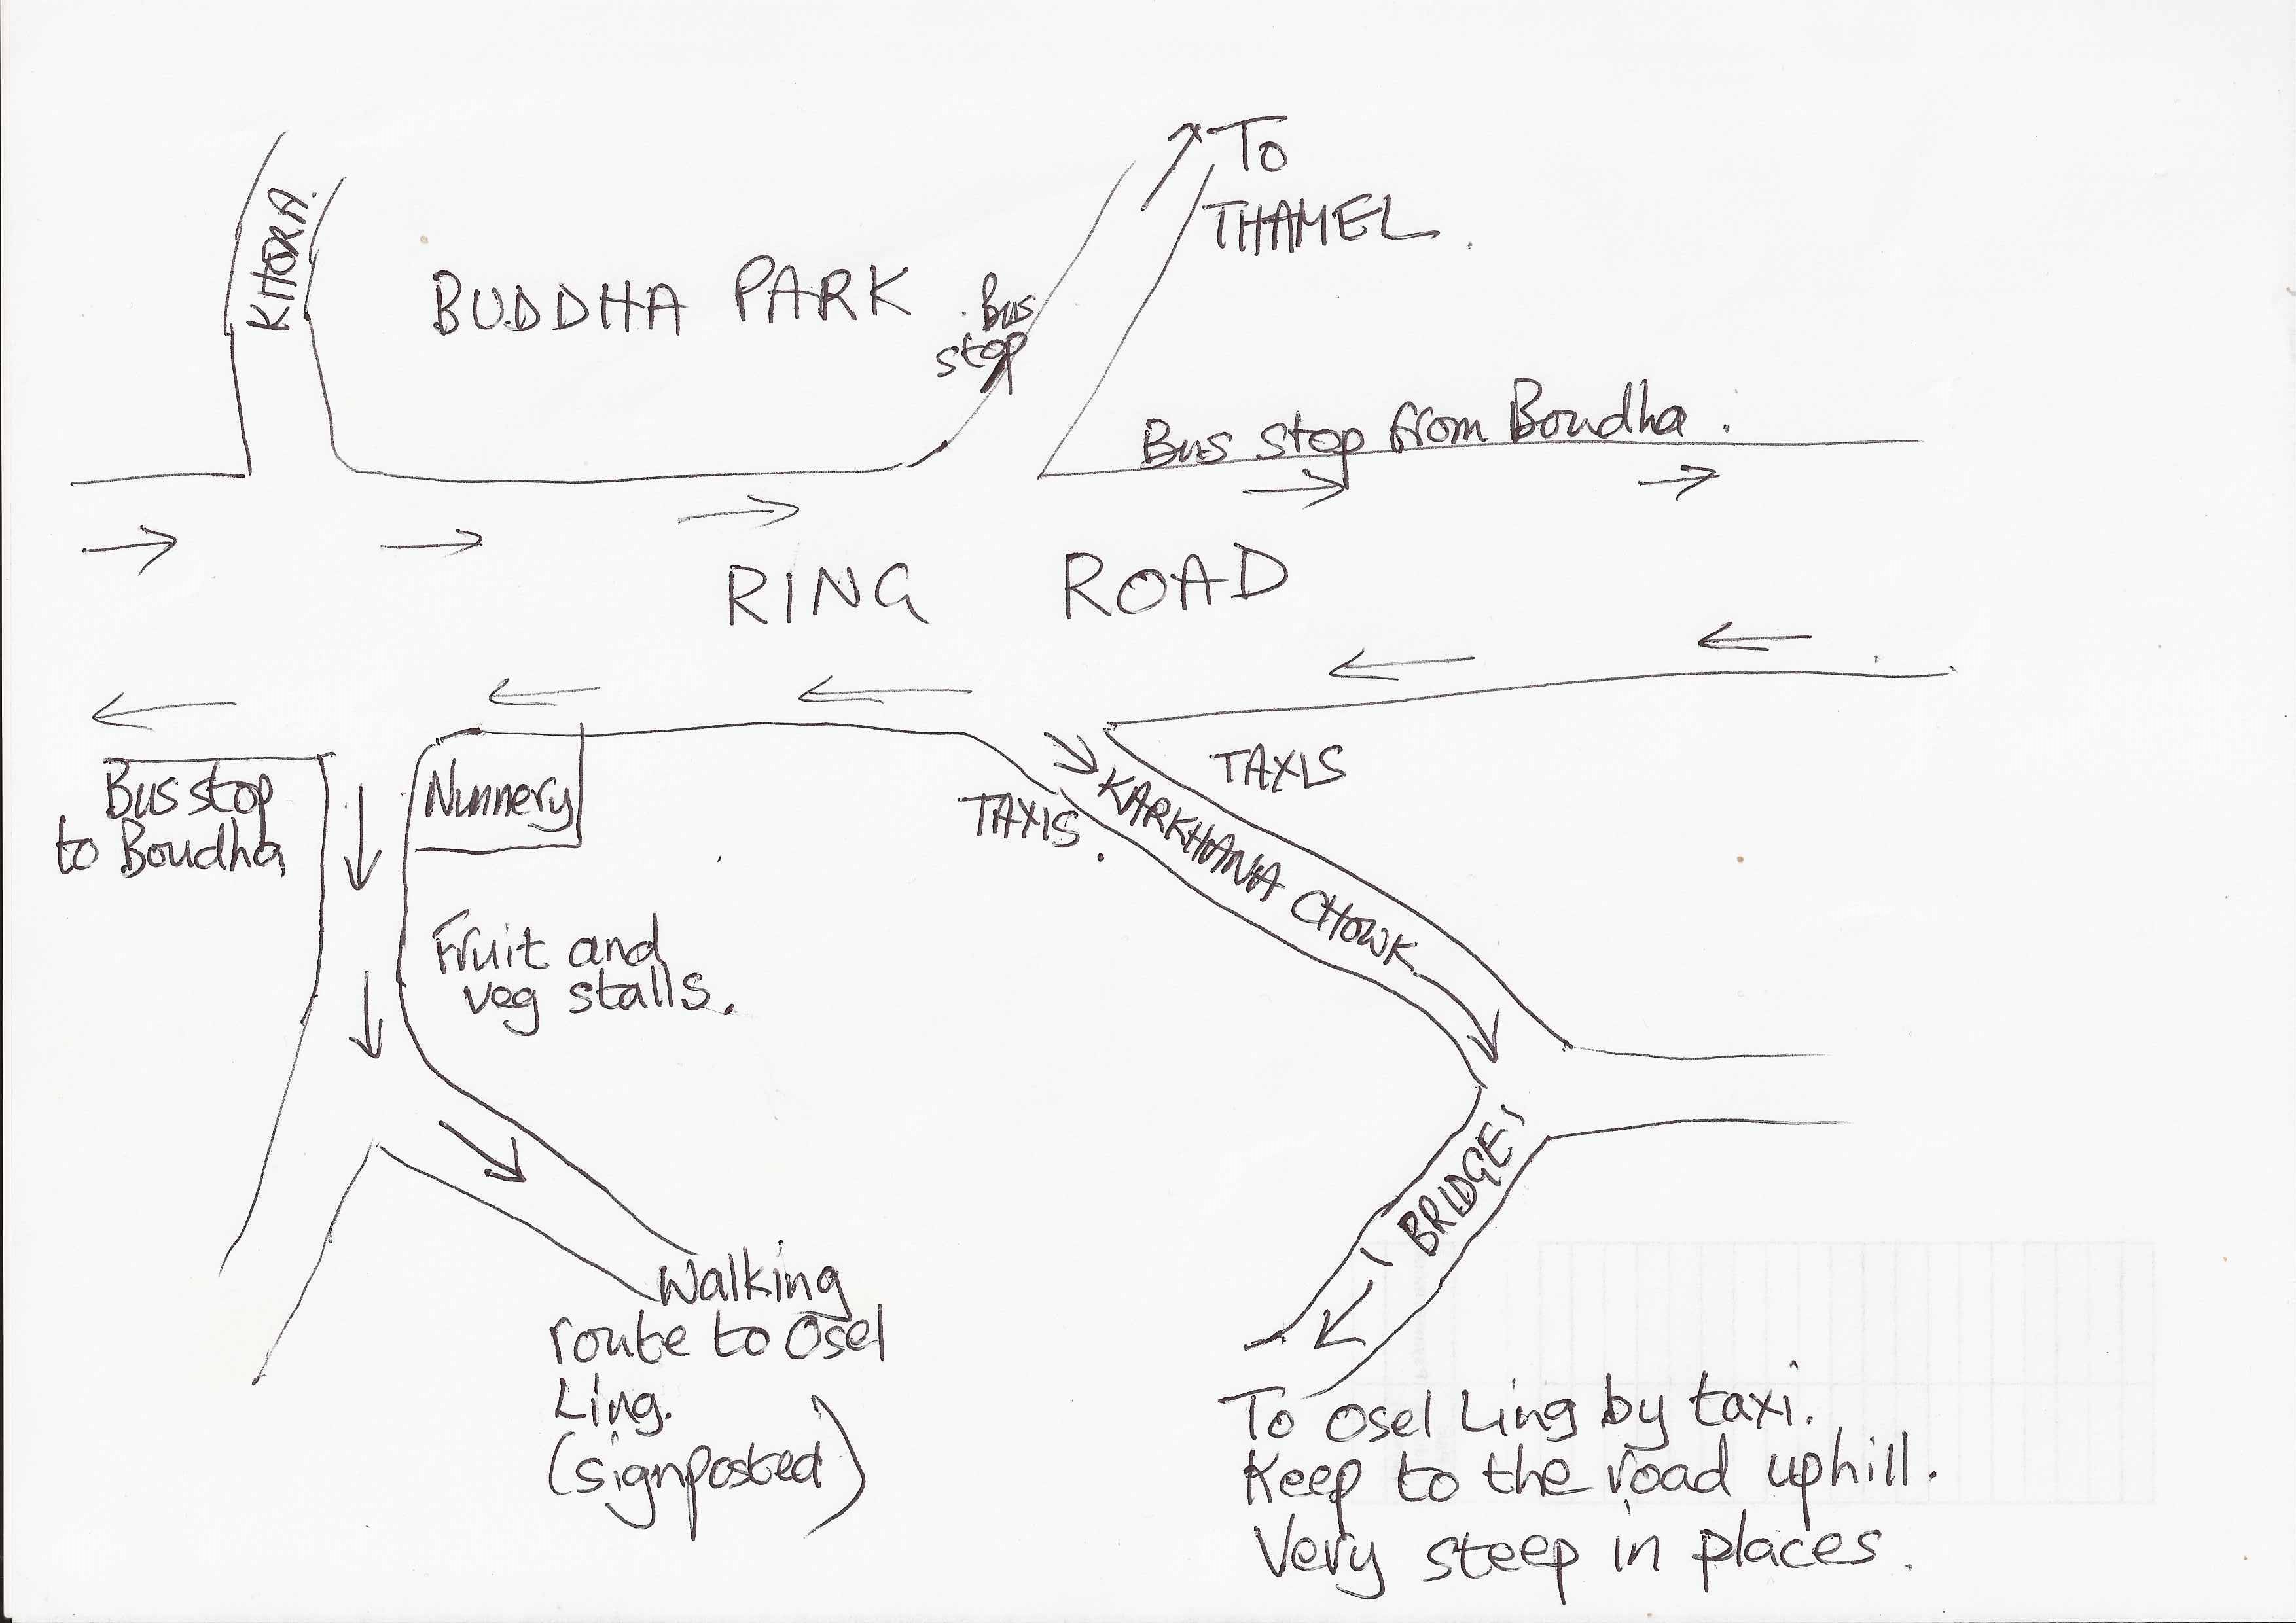 To
THAMEL.
KHORA.
BUDDHA PARK
. Bus
stop
Bus stop from Boudha.
RING ROAD
Bus stop
to Boudha
Nunnery
TAXIS
TAXIS.
KARKHANA CHOWK
Fruit and
veg stalls.
BRIDGE
Walking
route to Osel
Ling.
(signposted)
To Osel Ling by taxi.
Keep to the road uphill.
Very steep in places.